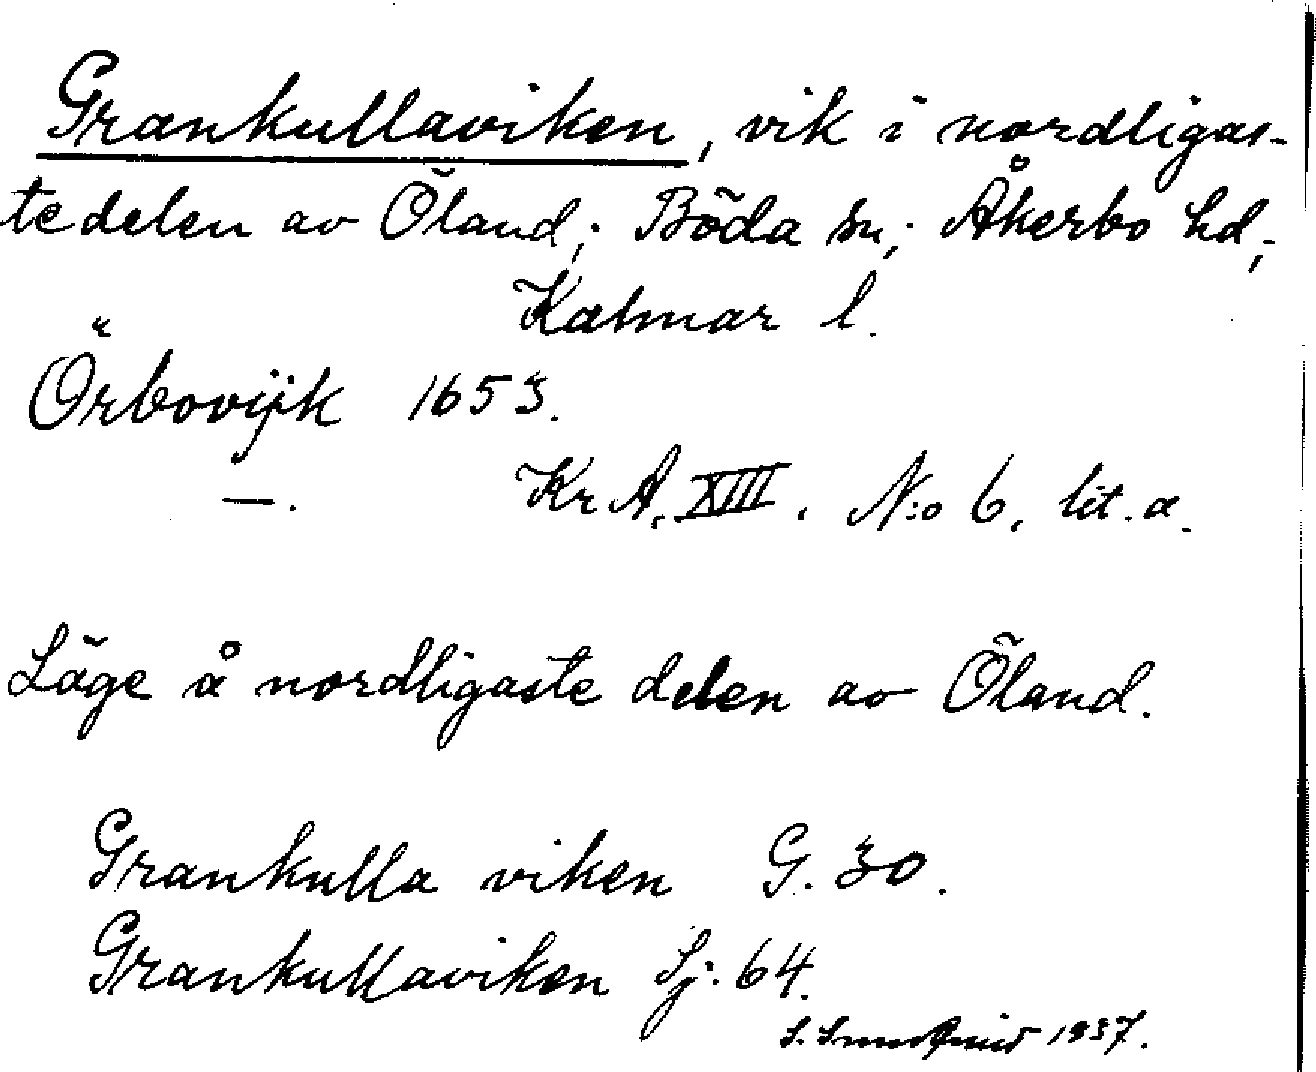 Grankullaviken, vik i nordligas-
te delen av Öland; Böda sn; Åkerbo hd;
Kalmar l.
Örbovijk 1653.
—. Kr. A. XIII. N:o 6, lit. a.
Läge å nordligaste delen av Öland.
Grankulla viken G. 30.
Grankullaviken Sj. 64.
S. 1937.